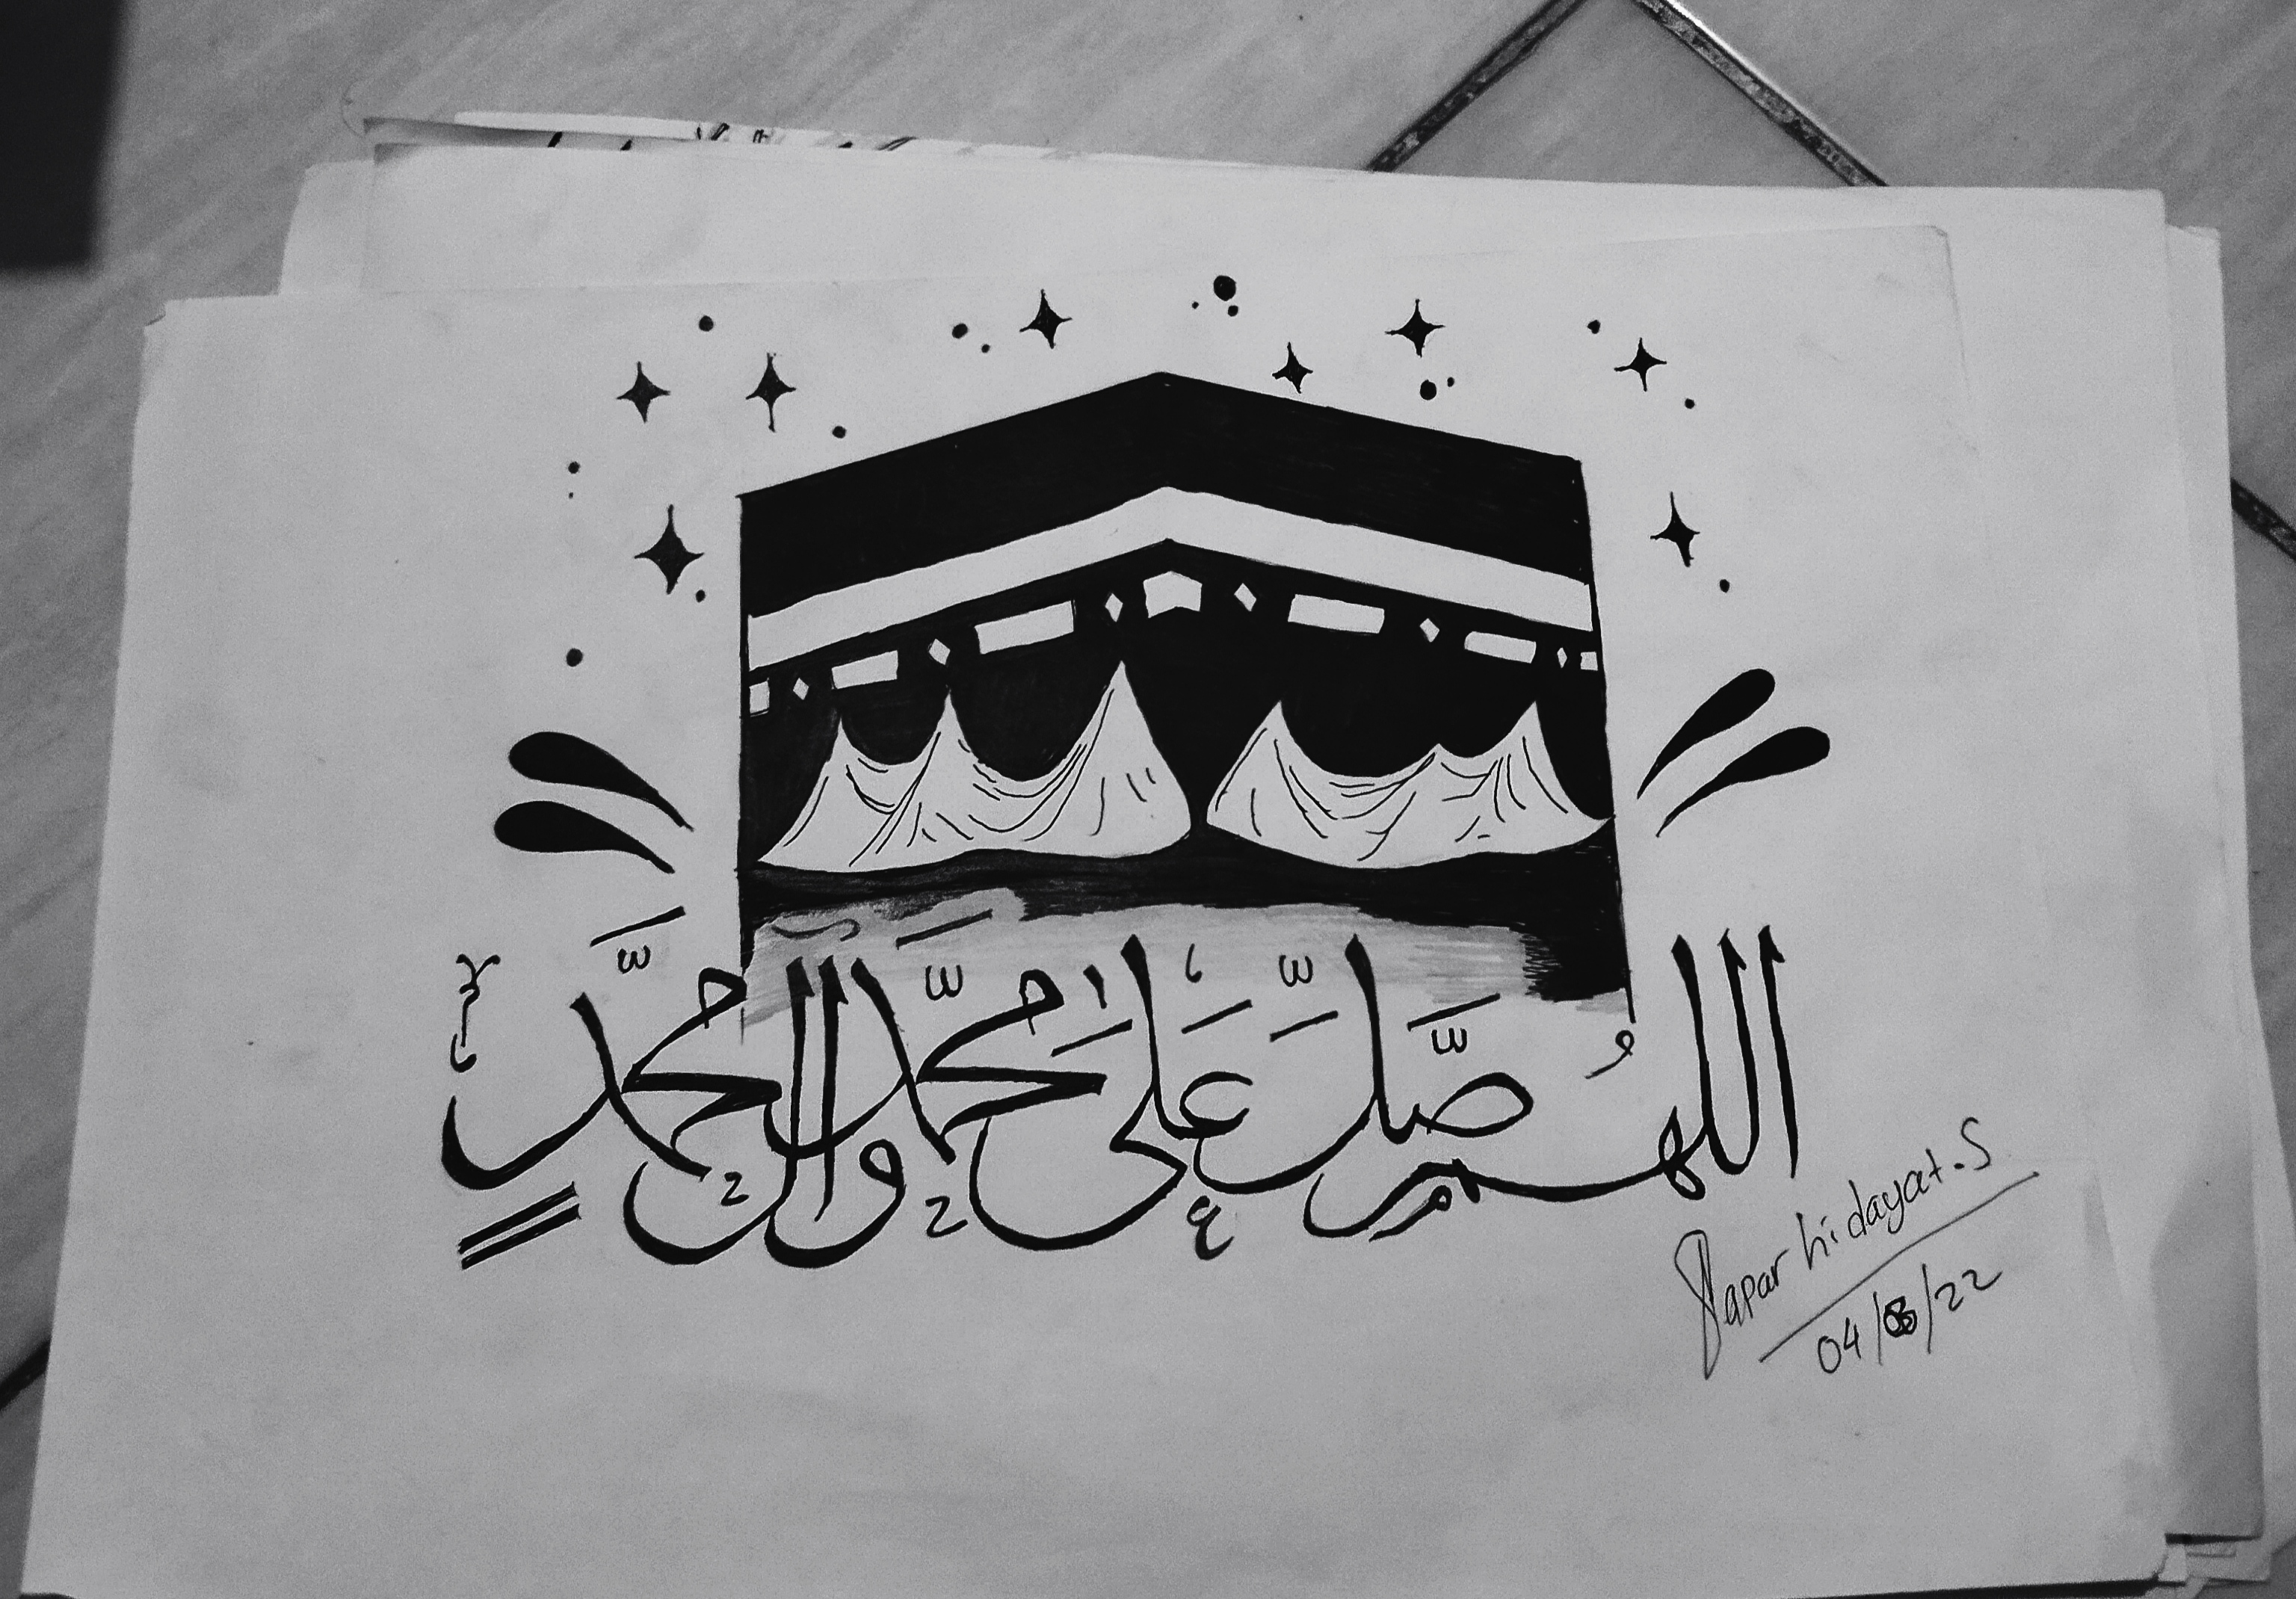 اللهم صل على محمد وال محمد
Papar hidayat.S
04/08/22